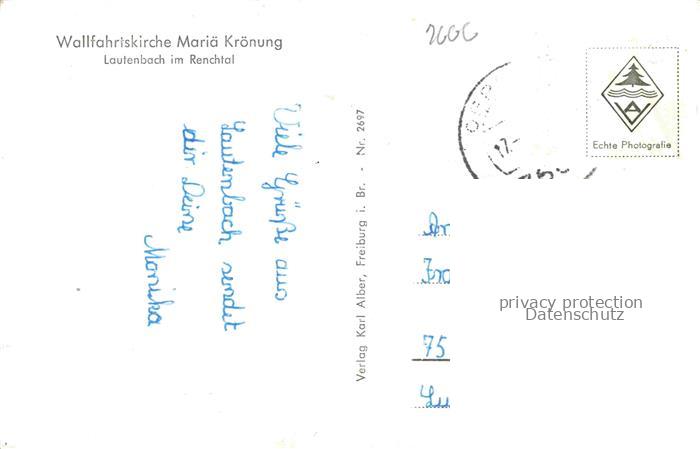 Wallfahrtskirche Mariä Krönung
Lautenbach im Renchtal
Viele Grüße aus
Lautenbach sendet
dir Deine
Monika
Verlag Karl Alber, Freiburg i. Br. - Nr. 2697
Echte Photografie
75
privacy protection
Datenschutz